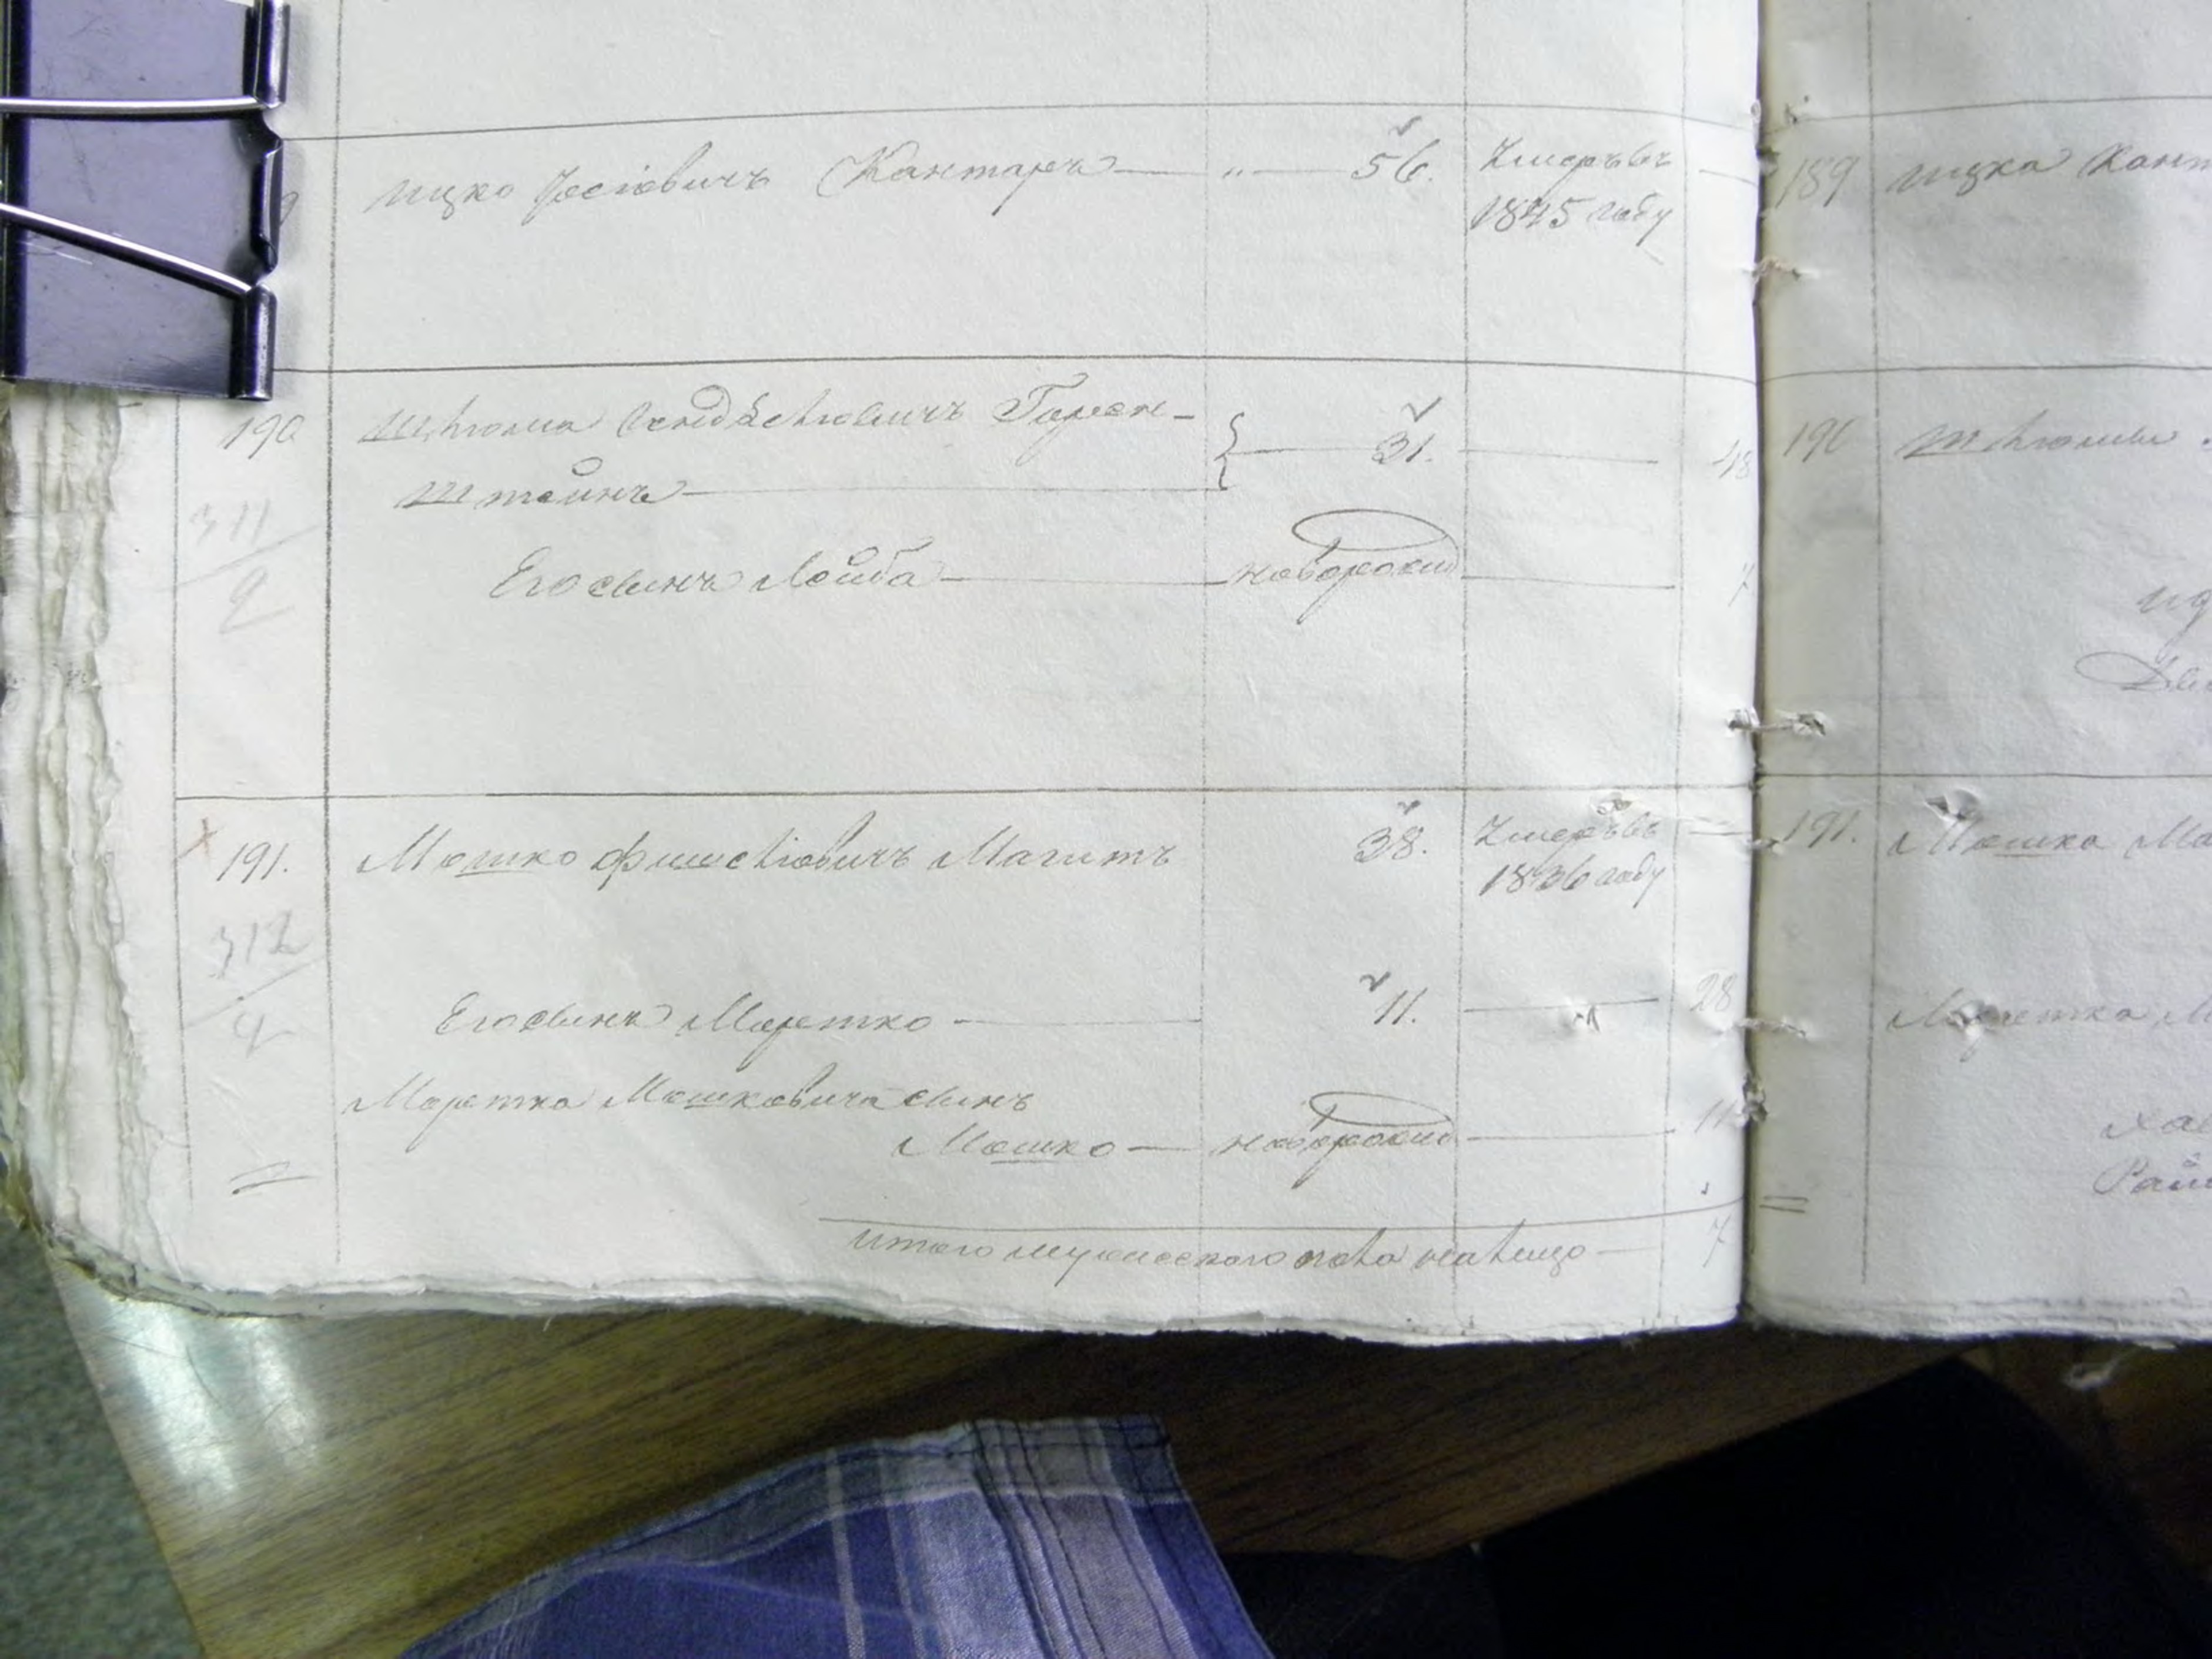 9 Ицко Іосіовичъ Кантаръ — „ — 56. Умеръ въ
1845 году
190 Шлиома Гарен-
31. 48
штейнъ
311
2
Его сынъ Лейба — новорожд 7
191. Мошко Фишліовичъ Магитъ 38. Умеръ въ
1836 году
312
4
Его сынъ Моретко — 11. 28
Моретка Мошковича сынъ
Мошко — новорожд 11
итого мужеского пола налицо — 7
189 Ицка Кант
190 Шлиомы
Ид
191. Мошка Ма
Моретка М
Ха
Рай